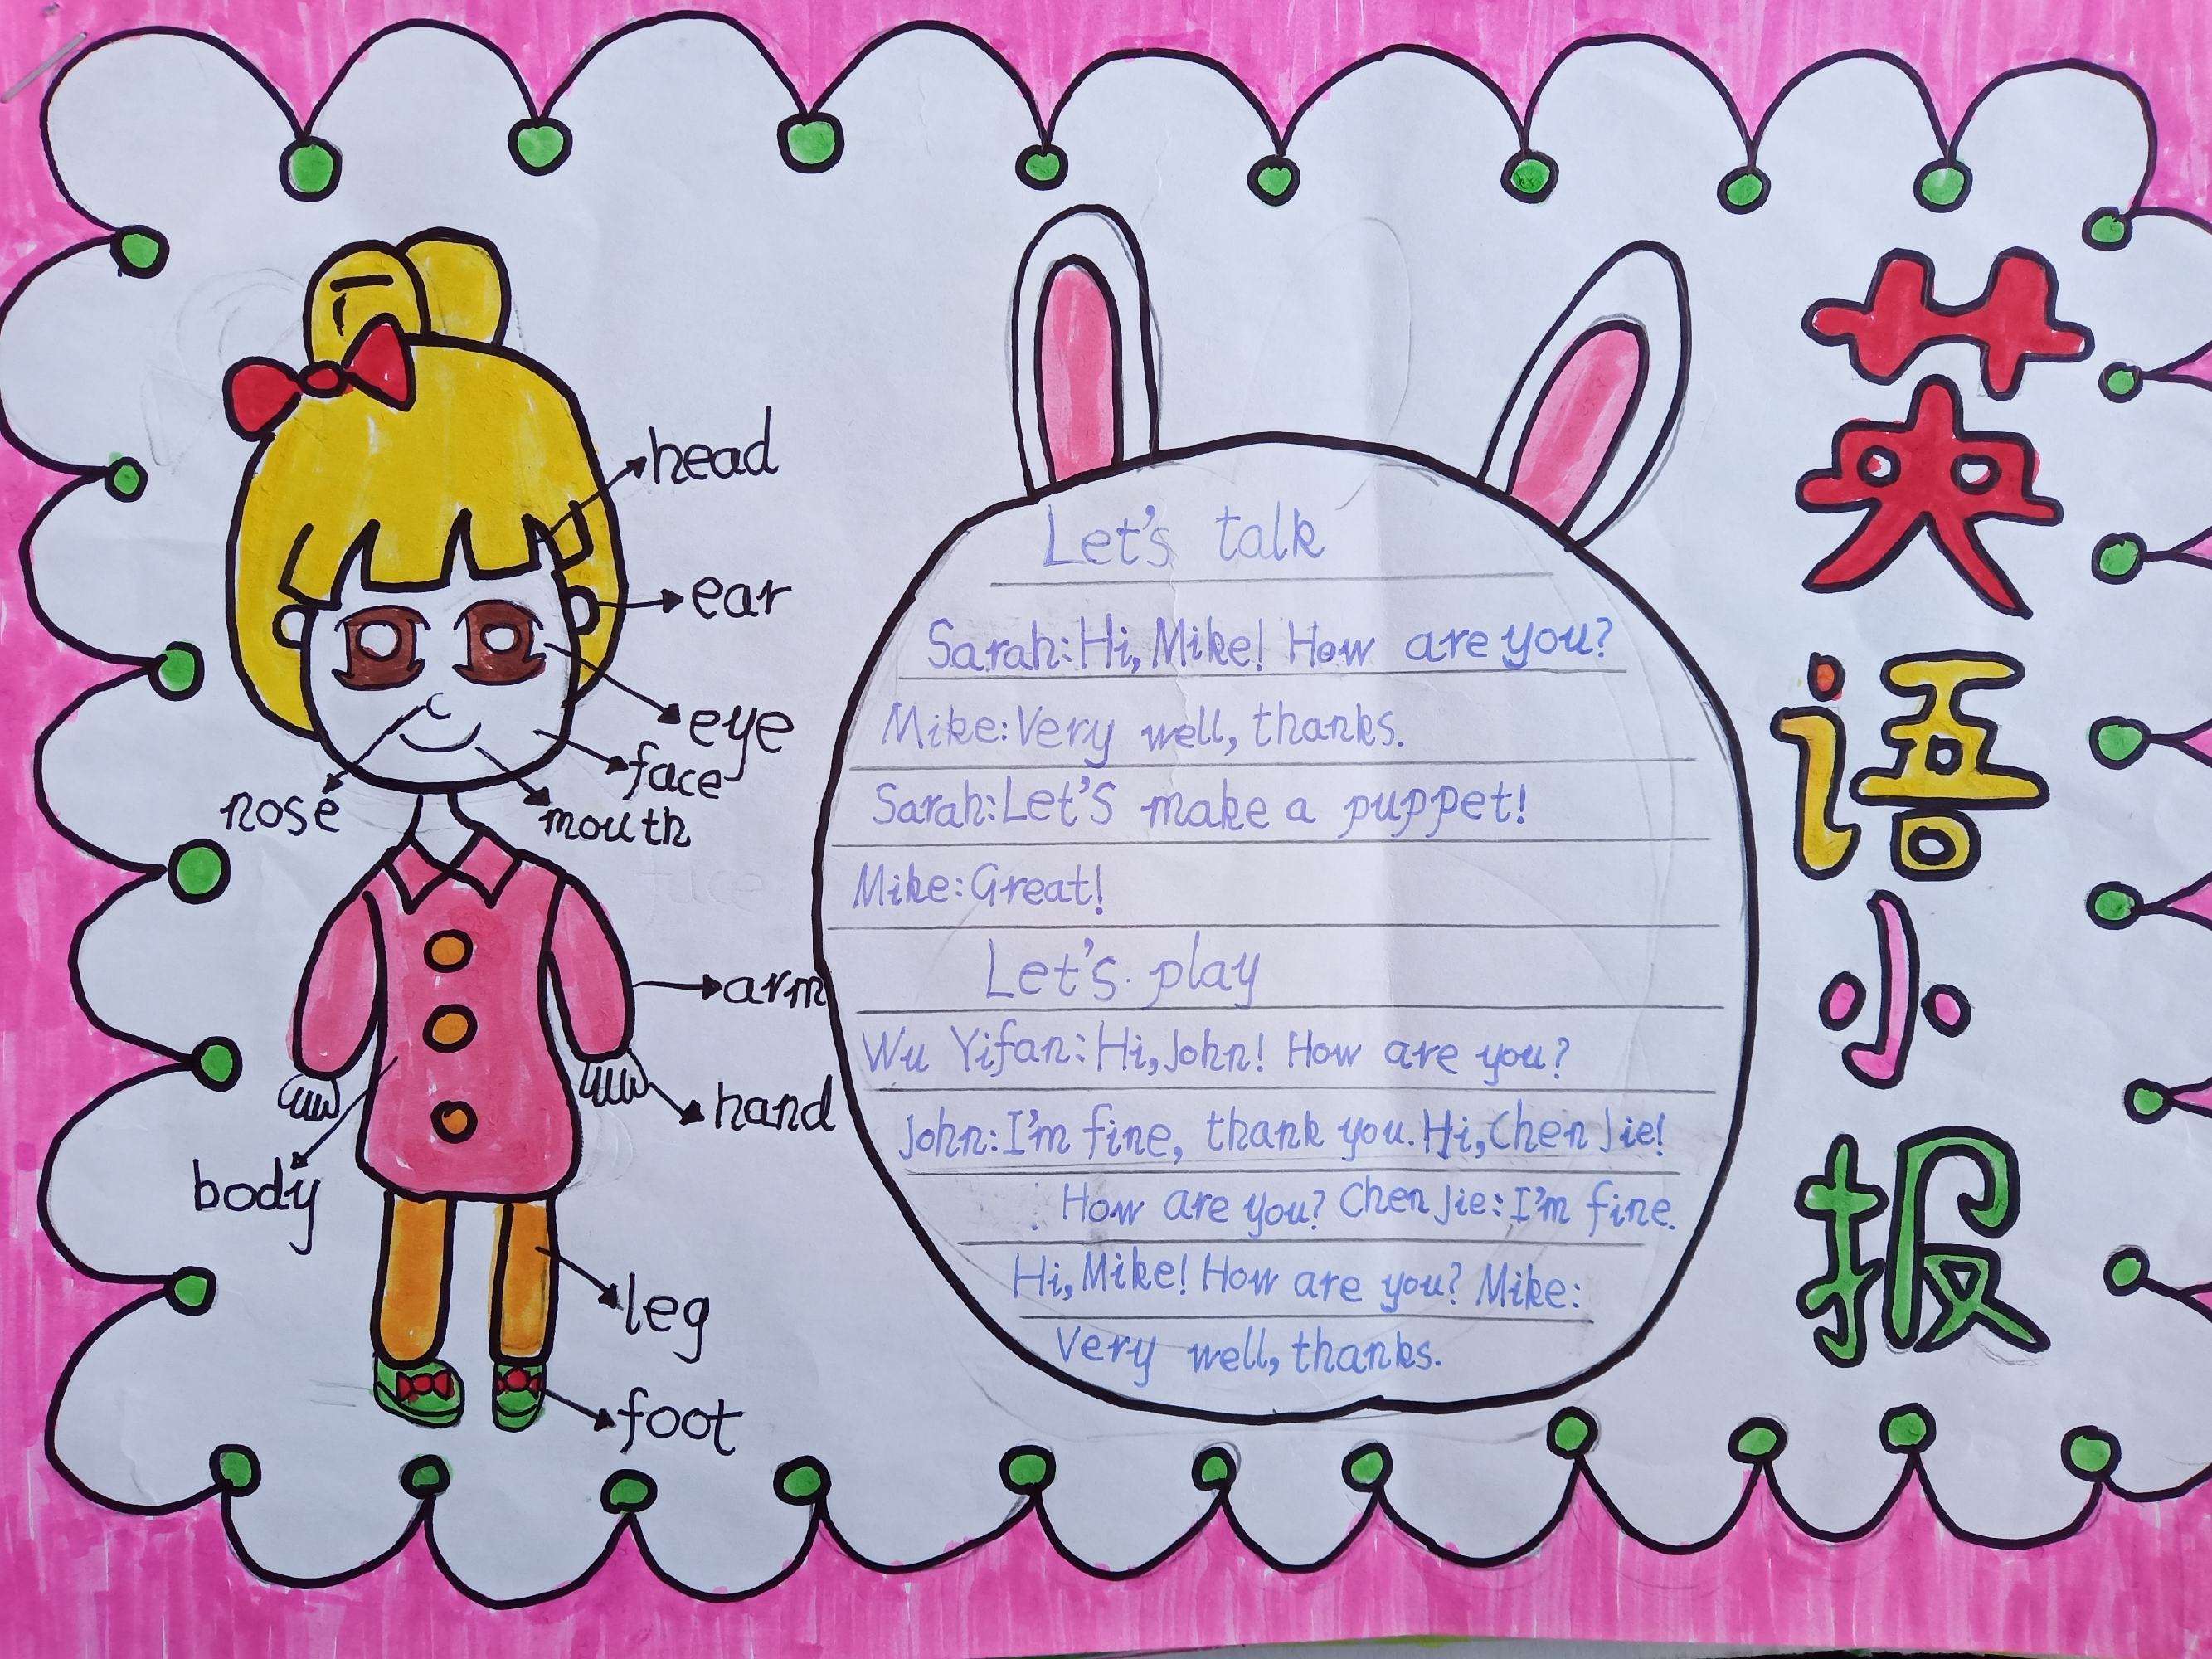 head
ear
eye
face
mouth
nose
arm
hand
body
leg
foot
Let's talk
Sarah:Hi,Mike! How are you?
Mike:Very well, thanks.
Sarah:Let's make a puppet!
Mike:Great!
Let's play
Wu Yifan:Hi,John! How are you?
John:I'm fine, thank you.Hi,Chen Jie!
How are you? Chen Jie:I'm fine.
Hi,Mike! How are you? Mike:
Very well,thanks.
英语小报